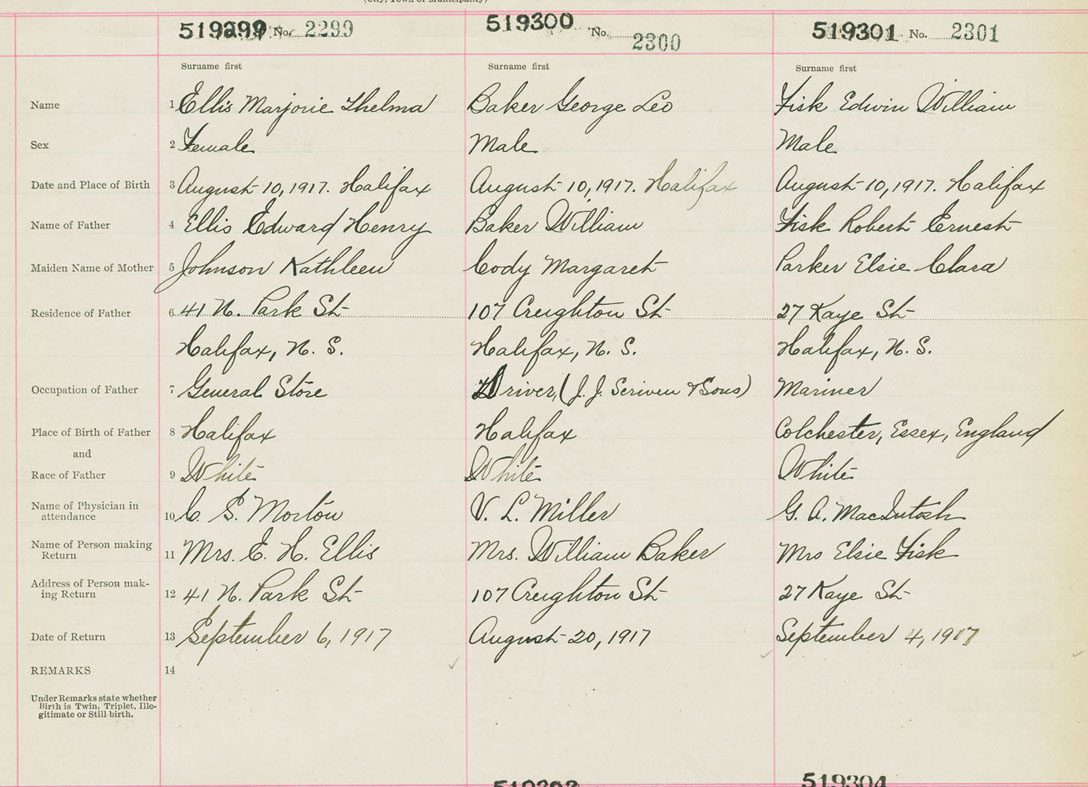 519299 No. 2299 519300 No. 2300 519301 No. 2301
Surname first Surname first Surname first
Name 1 Ellis Marjorie Thelma Baker George Leo Fisk Edwin William
Sex 2 Female Male Male
Date and Place of Birth 3 August 10, 1917. Halifax August 10, 1917. Halifax August 10, 1917. Halifax
Name of Father 4 Ellis Edward Henry Baker William Fisk Robert Ernest
Maiden Name of Mother 5 Johnson Kathleen Cody Margaret Parker Elsie Clara
Residence of Father 6 41 N. Park St 107 Creighton St 27 Kaye St
Halifax, N. S. Halifax, N. S. Halifax, N. S.
Occupation of Father 7 General Store Driver, (J. J. Scriven & Sons) Mariner
Place of Birth of Father 8 Halifax Halifax Colchester, Essex, England
and
Race of Father 9 White White White
Name of Physician in
attendance 10 C. S. Morton V. L. Miller G. A. MacIntosh
Name of Person making
Return 11 Mrs. E. H. Ellis Mrs. William Baker Mrs Elsie Fisk
Address of Person mak-
ing Return 12 41 N. Park St 107 Creighton St 27 Kaye St
Date of Return 13 September 6, 1917 August 20, 1917 September 4, 1917
REMARKS 14
Under Remarks state whether
Birth is Twin, Triplet, Ille-
gitimate or Still birth.
519304